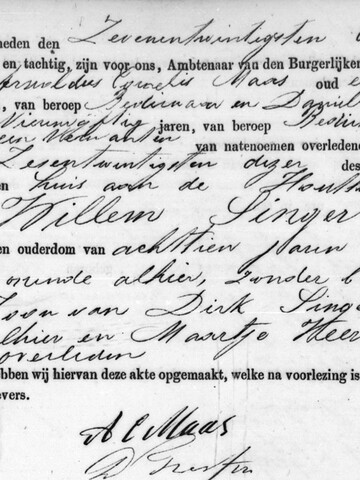 heden den Zevenentwintigsten
en tachtig, zijn voor ons, Ambtenaar van den Burgerlijken
Cornelis Maas oud
, van beroep Bediende en Daniel
Vierenvijftig jaren, van beroep
van natenoemen overledene
Zesentwintigsten dezer des
en huis aan de Hout
Willem Singer
en ouderdom van achttien jaren
alhier, zonder b
Zoon van Dirk Sing
lhier en Maartje Heer
overleden
bben wij hiervan deze akte opgemaakt, welke na voorlezing is
evers.
A C Maas
D